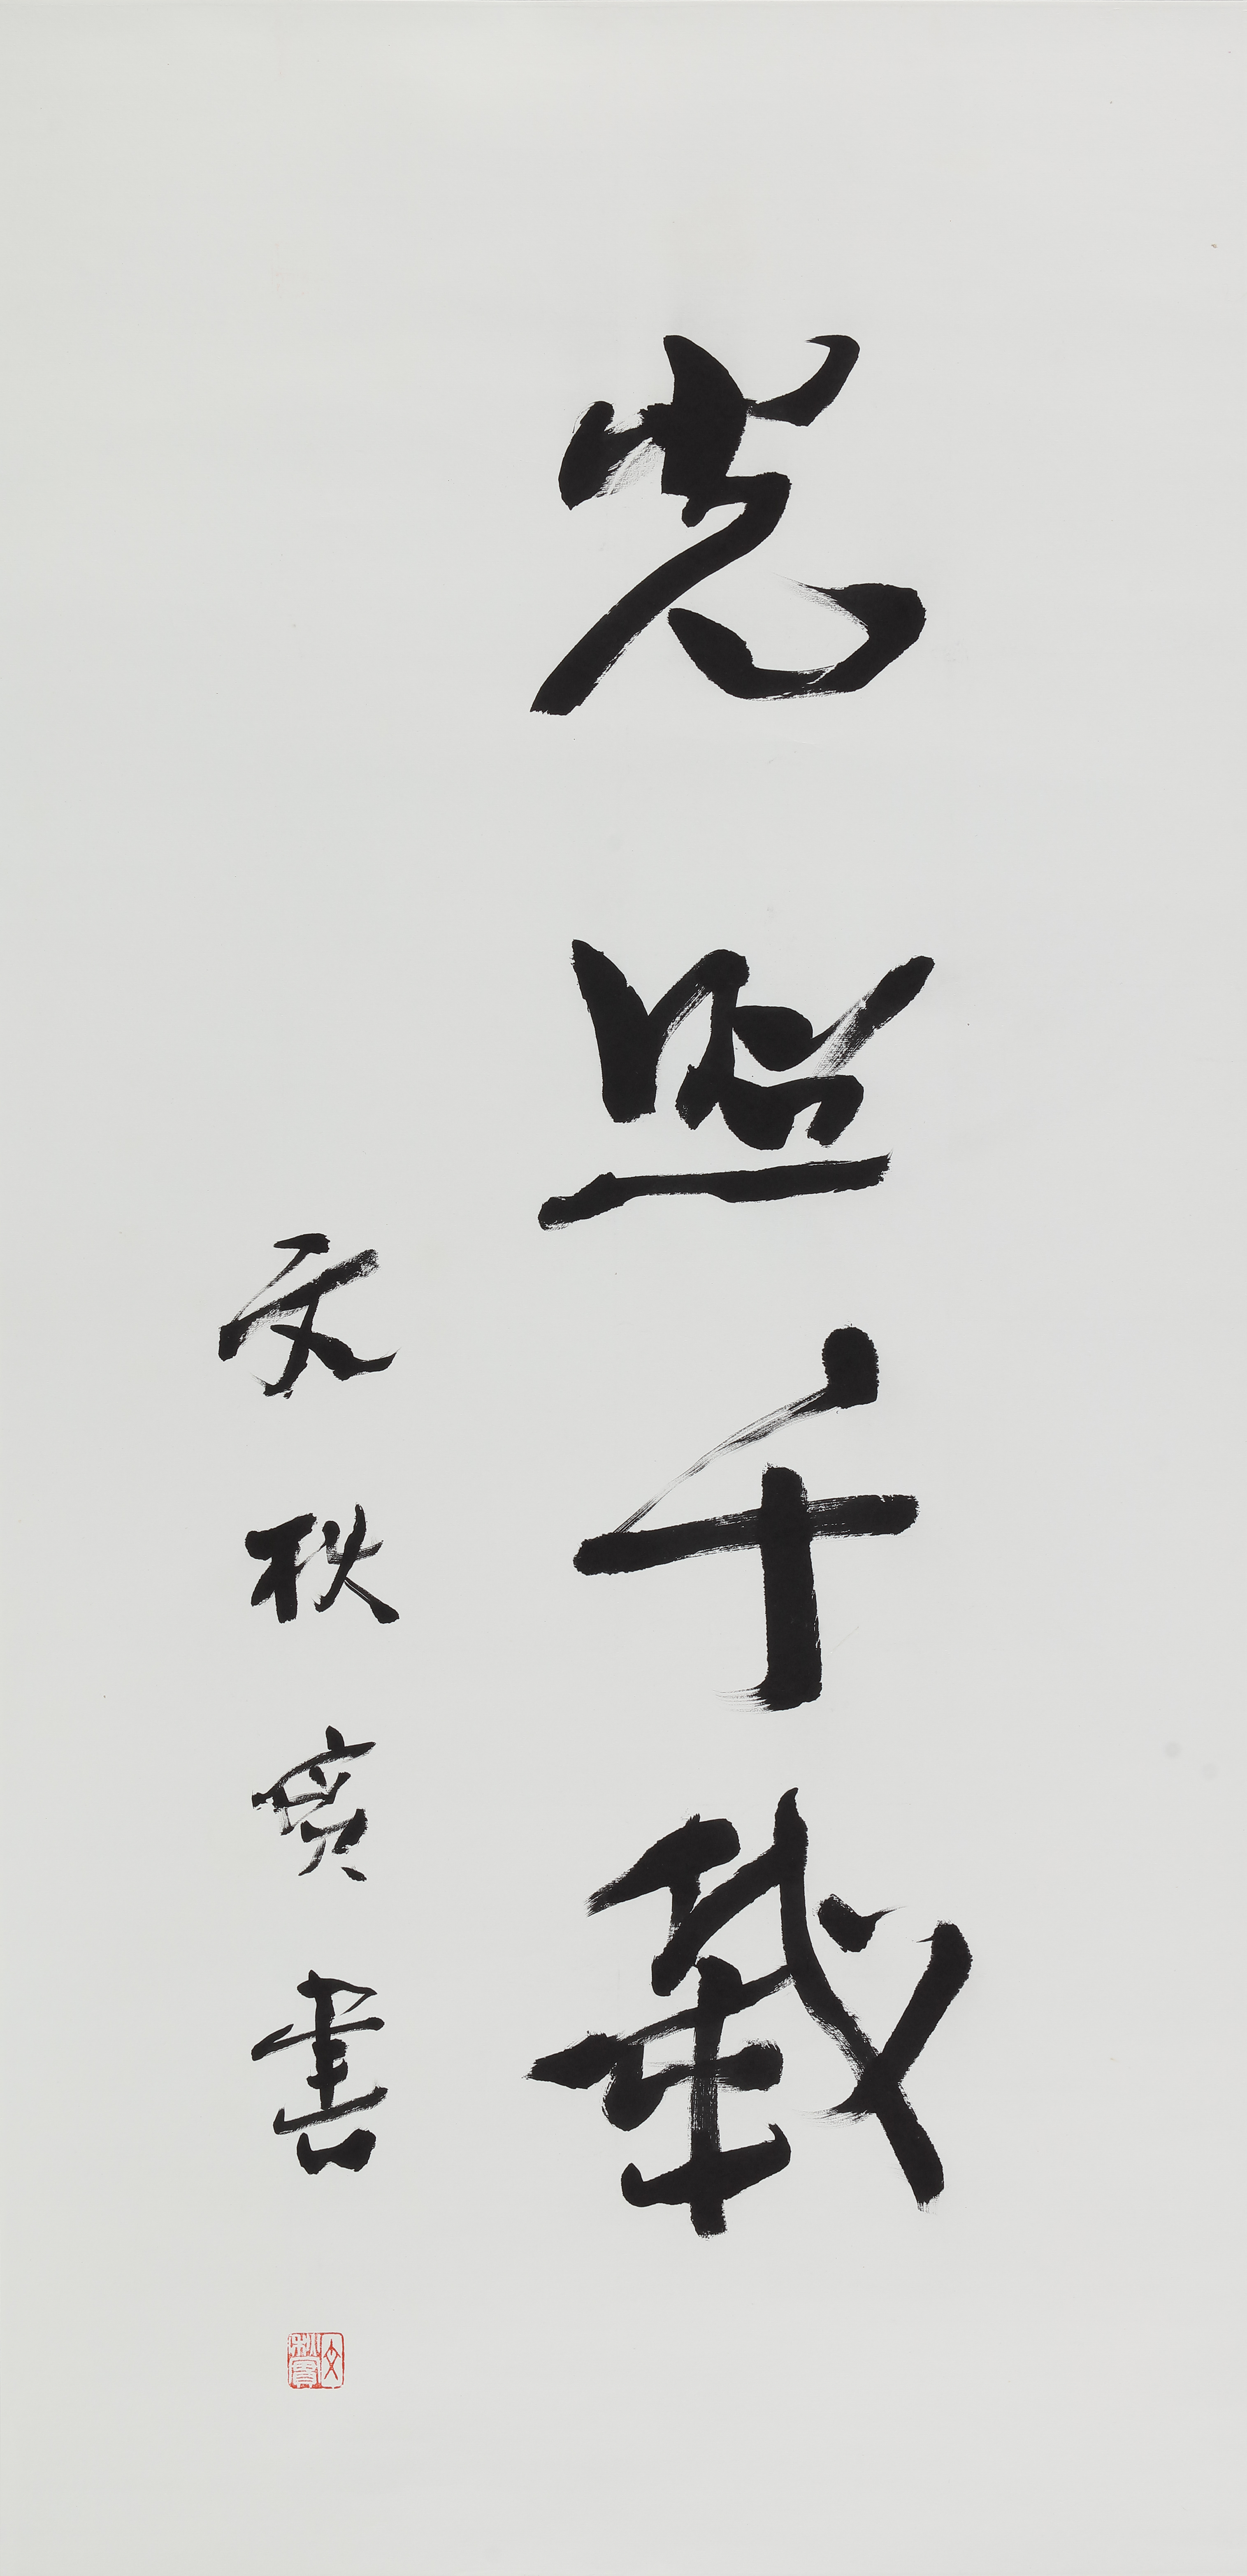 光照千載
文秋書